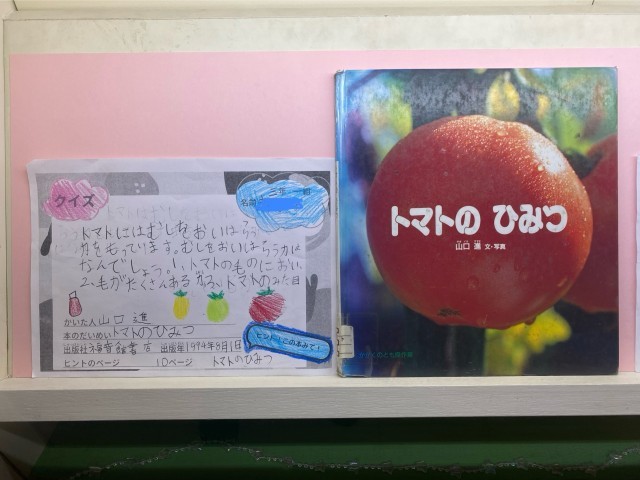 クイズ
三年 一組
名前
トマトにはむしをおいはらう
力をもっています。むしをおいはらう力は
なんでしょう。1、トマトのものにおい
2、毛がたくさんあるから、トマトのみた目
かいた人山口進
本のだいめいトマトのひみつ
出版社福音館書店 出版年1994年8月1日
ヒントのページ 10ページ トマトのひみつ
ヒントはこの本みて!
トマトの ひみつ
山口 進 文・写真
かがくのとも傑作集